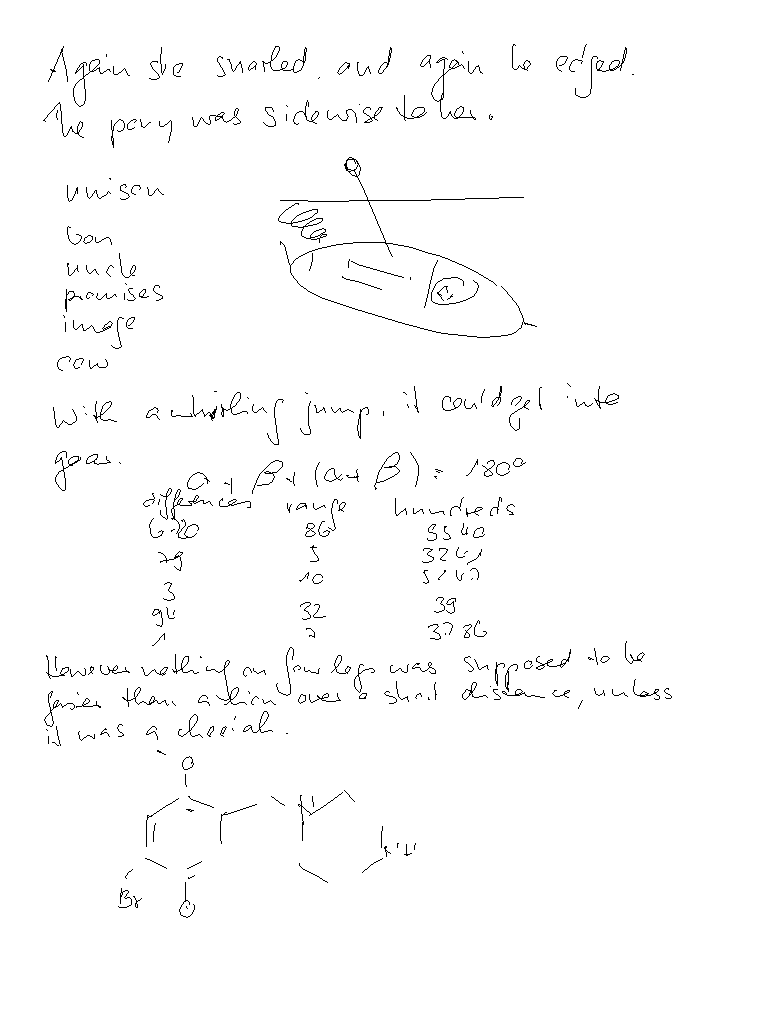 Again she snarled, and again he edged.
The pony was sidewise to her.
unison
uncle
promises
image
cow
With a whirling jump, it could get into
gear.
α + β + (α + β) = 180°
differences range hundreds
6.20 86 3540
79 5 3241
3 10
94 32 39
1 7 3786
However nothing on four legs was supposed to be
faster than a lion over a short distance, unless
it was a cheetah.
O
Br
O